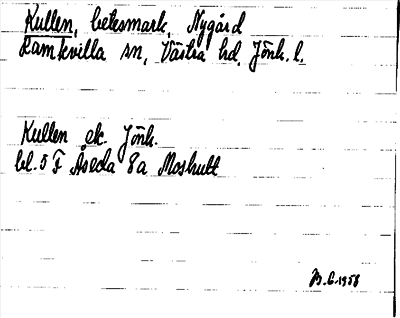 Kullen, betesmark, Nygård
Ramkvilla sn, Västra hd, Jönk. l.
Kullen ek. Jönk.
bl. 5 F Åseda 8a Moshult
B.G. 1958